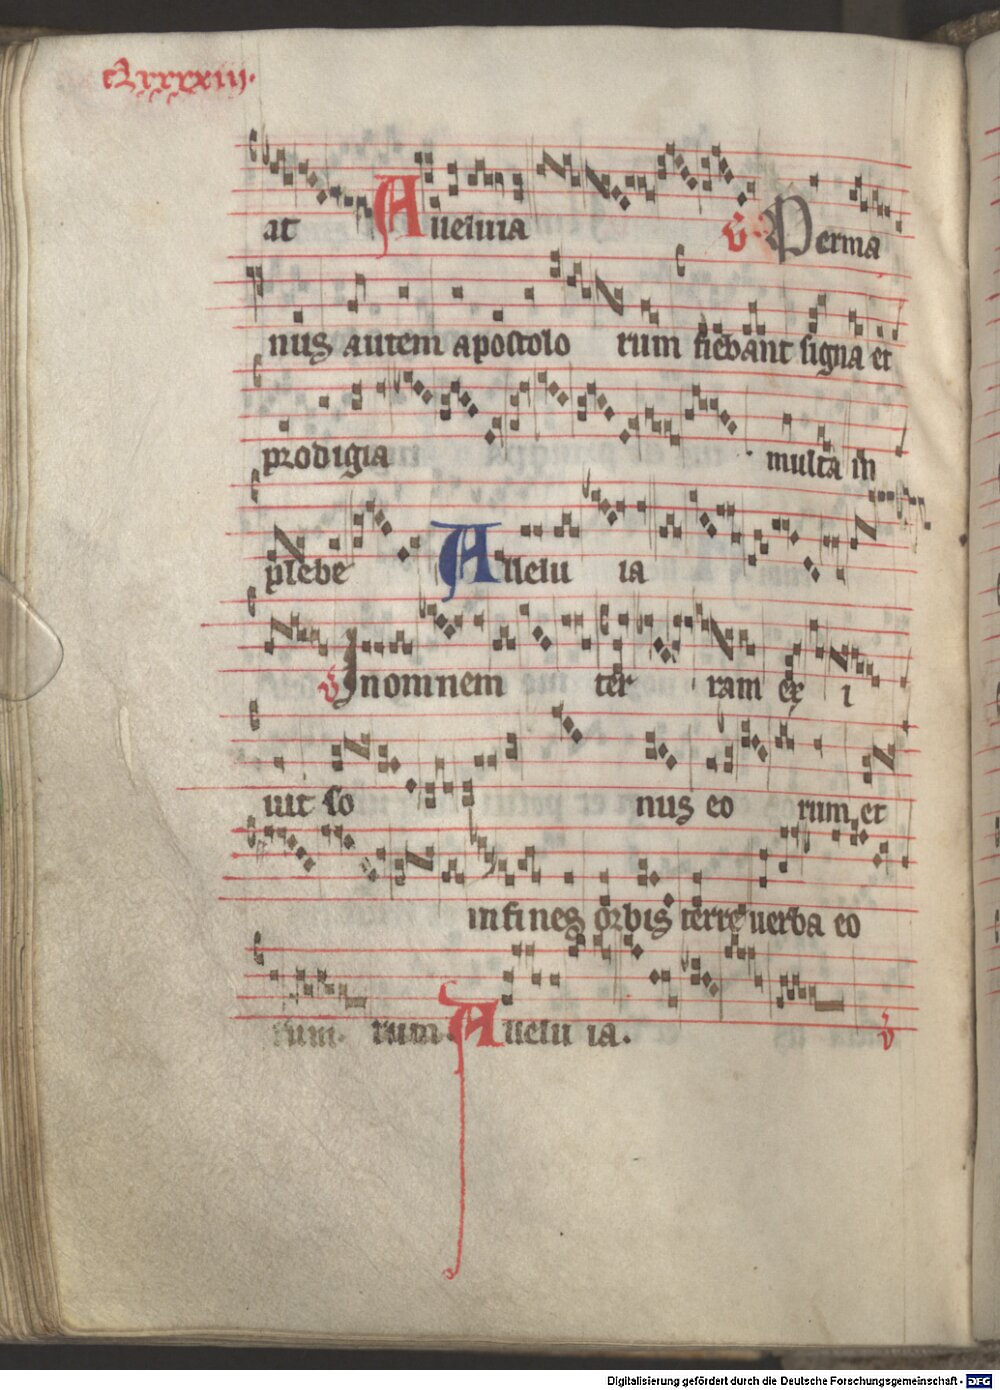 at Alleluia ℣ Perma
nus autem apostolo rum fiebant signa et
prodigia multa in
plebe Allelu ia
℣ In omnem ter ram ex i
uit so nus eo rum et
in fines orbis terre uerba eo
rum. rum. Allelu ia. ℣
Digitalisierung gefördert durch die Deutsche Forschungsgemeinschaft - DFG